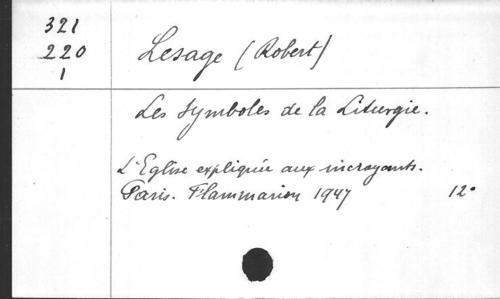 321
220
1
Lesage (Robert)
Les Symboles de la Liturgie.
L'Eglise expliquée aux incroyants.
Paris. Flammarion 1947 12°